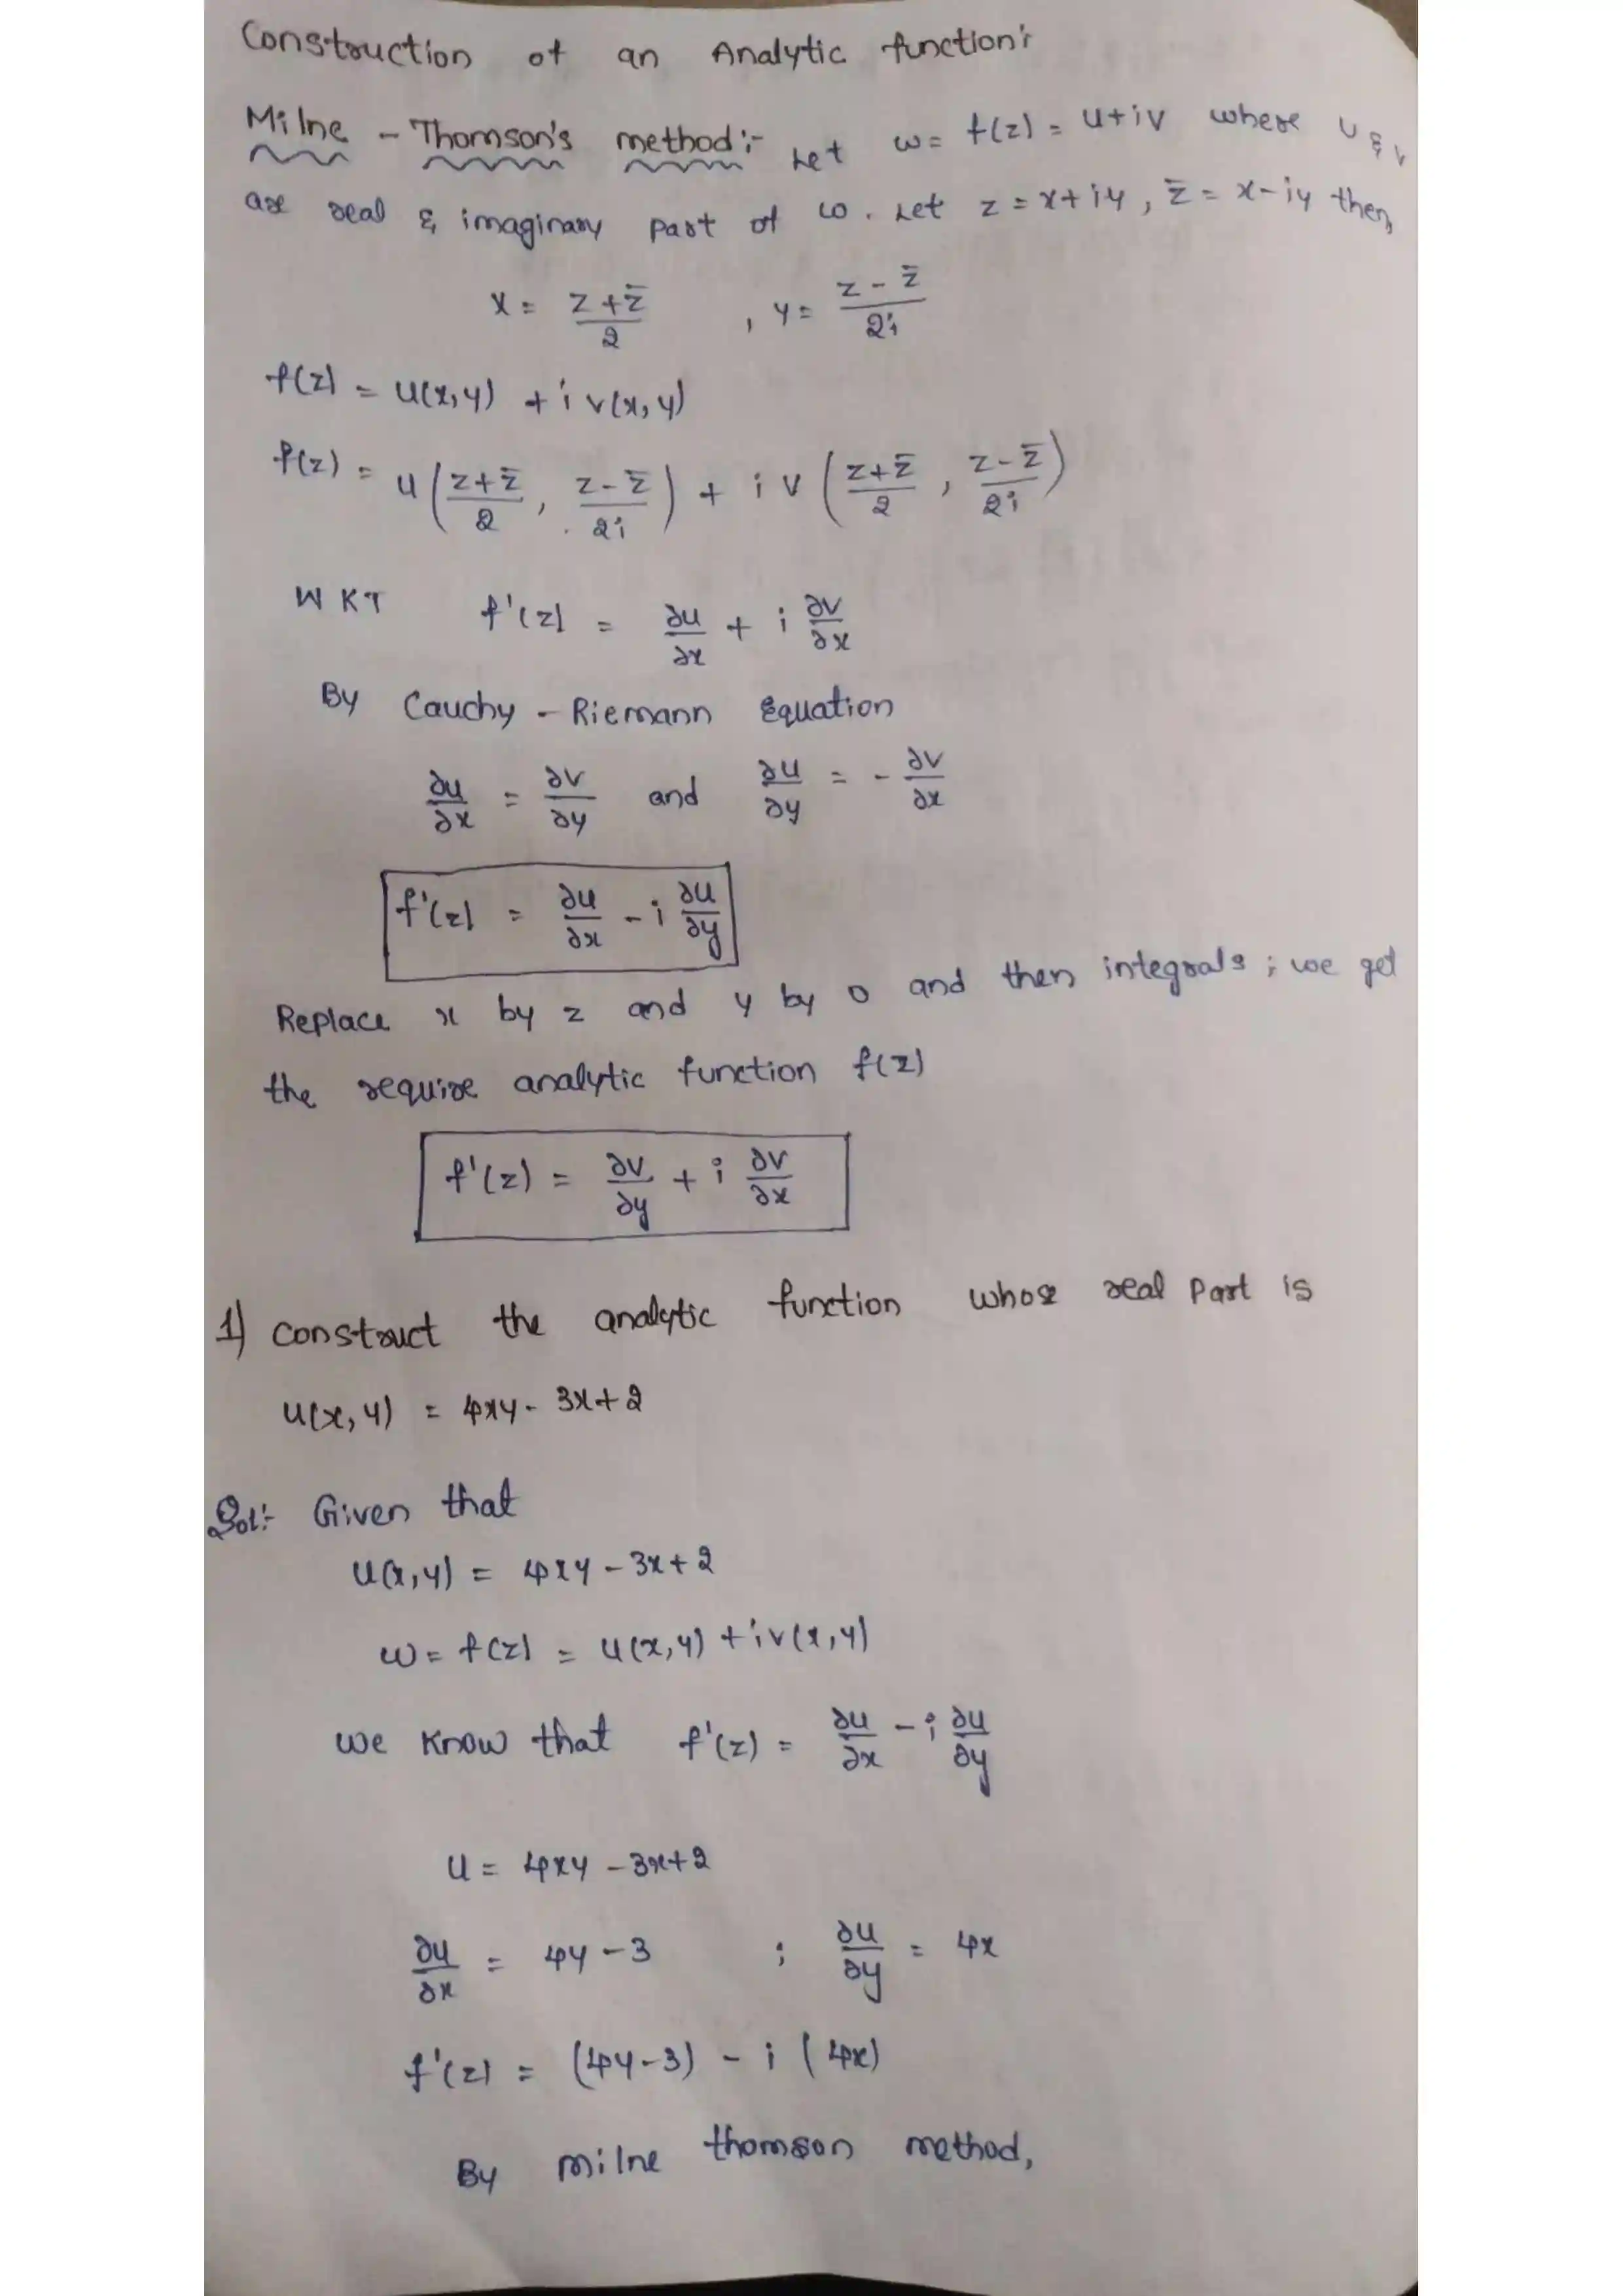 Construction of an Analytic function:
Milne - Thomson's method:- Let w = f(z) = u+iv where u & v
are real & imaginary part of w. Let z = x+iy, z̄ = x-iy then,
x = (z+z̄)/2 , y = (z-z̄)/2i
f(z) = u(x,y) + i v(x,y)
f(z) = u((z+z̄)/2, (z-z̄)/2i) + i v((z+z̄)/2, (z-z̄)/2i)
WKT f'(z) = ∂u/∂x + i ∂v/∂x
By Cauchy - Riemann Equation
∂u/∂x = ∂v/∂y and ∂u/∂y = - ∂v/∂x
f'(z) = ∂u/∂x - i ∂u/∂y
Replace x by z and y by 0 and then integrals; we get
the require analytic function f(z)
f'(z) = ∂v/∂y + i ∂v/∂x
1) construct the analytic function whose real part is
u(x,y) = 4xy - 3x+2
Sol:- Given that
u(x,y) = 4xy - 3x+2
w = f(z) = u(x,y) + iv(x,y)
we know that f'(z) = ∂u/∂x - i ∂u/∂y
u = 4xy - 3x+2
∂u/∂x = 4y - 3 ; ∂u/∂y = 4x
f'(z) = (4y-3) - i (4x)
By milne thomson method,